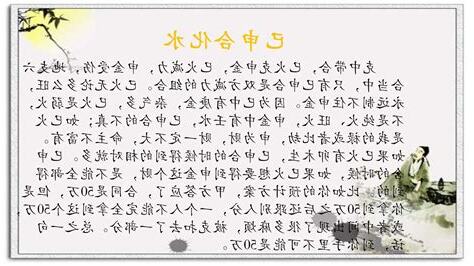 巳申合化水
克中带合，巳火克申金，巳火减力，申金受伤，地支六
合当中，只有巳申合是双方减力的组合。巳火无论多么旺，
永远制不住申金。因为巳中有庚金，杂气多，巳火是弱火，
不是纯火、旺火，申金中有壬水，巳申合的不真；如巳火
是我的禄或者比劫，申为财，财一定不大，命主不富有。
如果巳火有卯木生，巳申合的时候得到的相对就多。巳申
合的时候，如果巳火想要得到申金这个财，是不能全部得
到的，比如你的预计方案，甲方答应了，合同是50万，但是
你拿到50万之后还跟别人分，一个人不能完全拿到这个50万，
或者中间出现了很多麻烦，被克扣去了一部分。总之一句
话，到你手里不可能是50万。